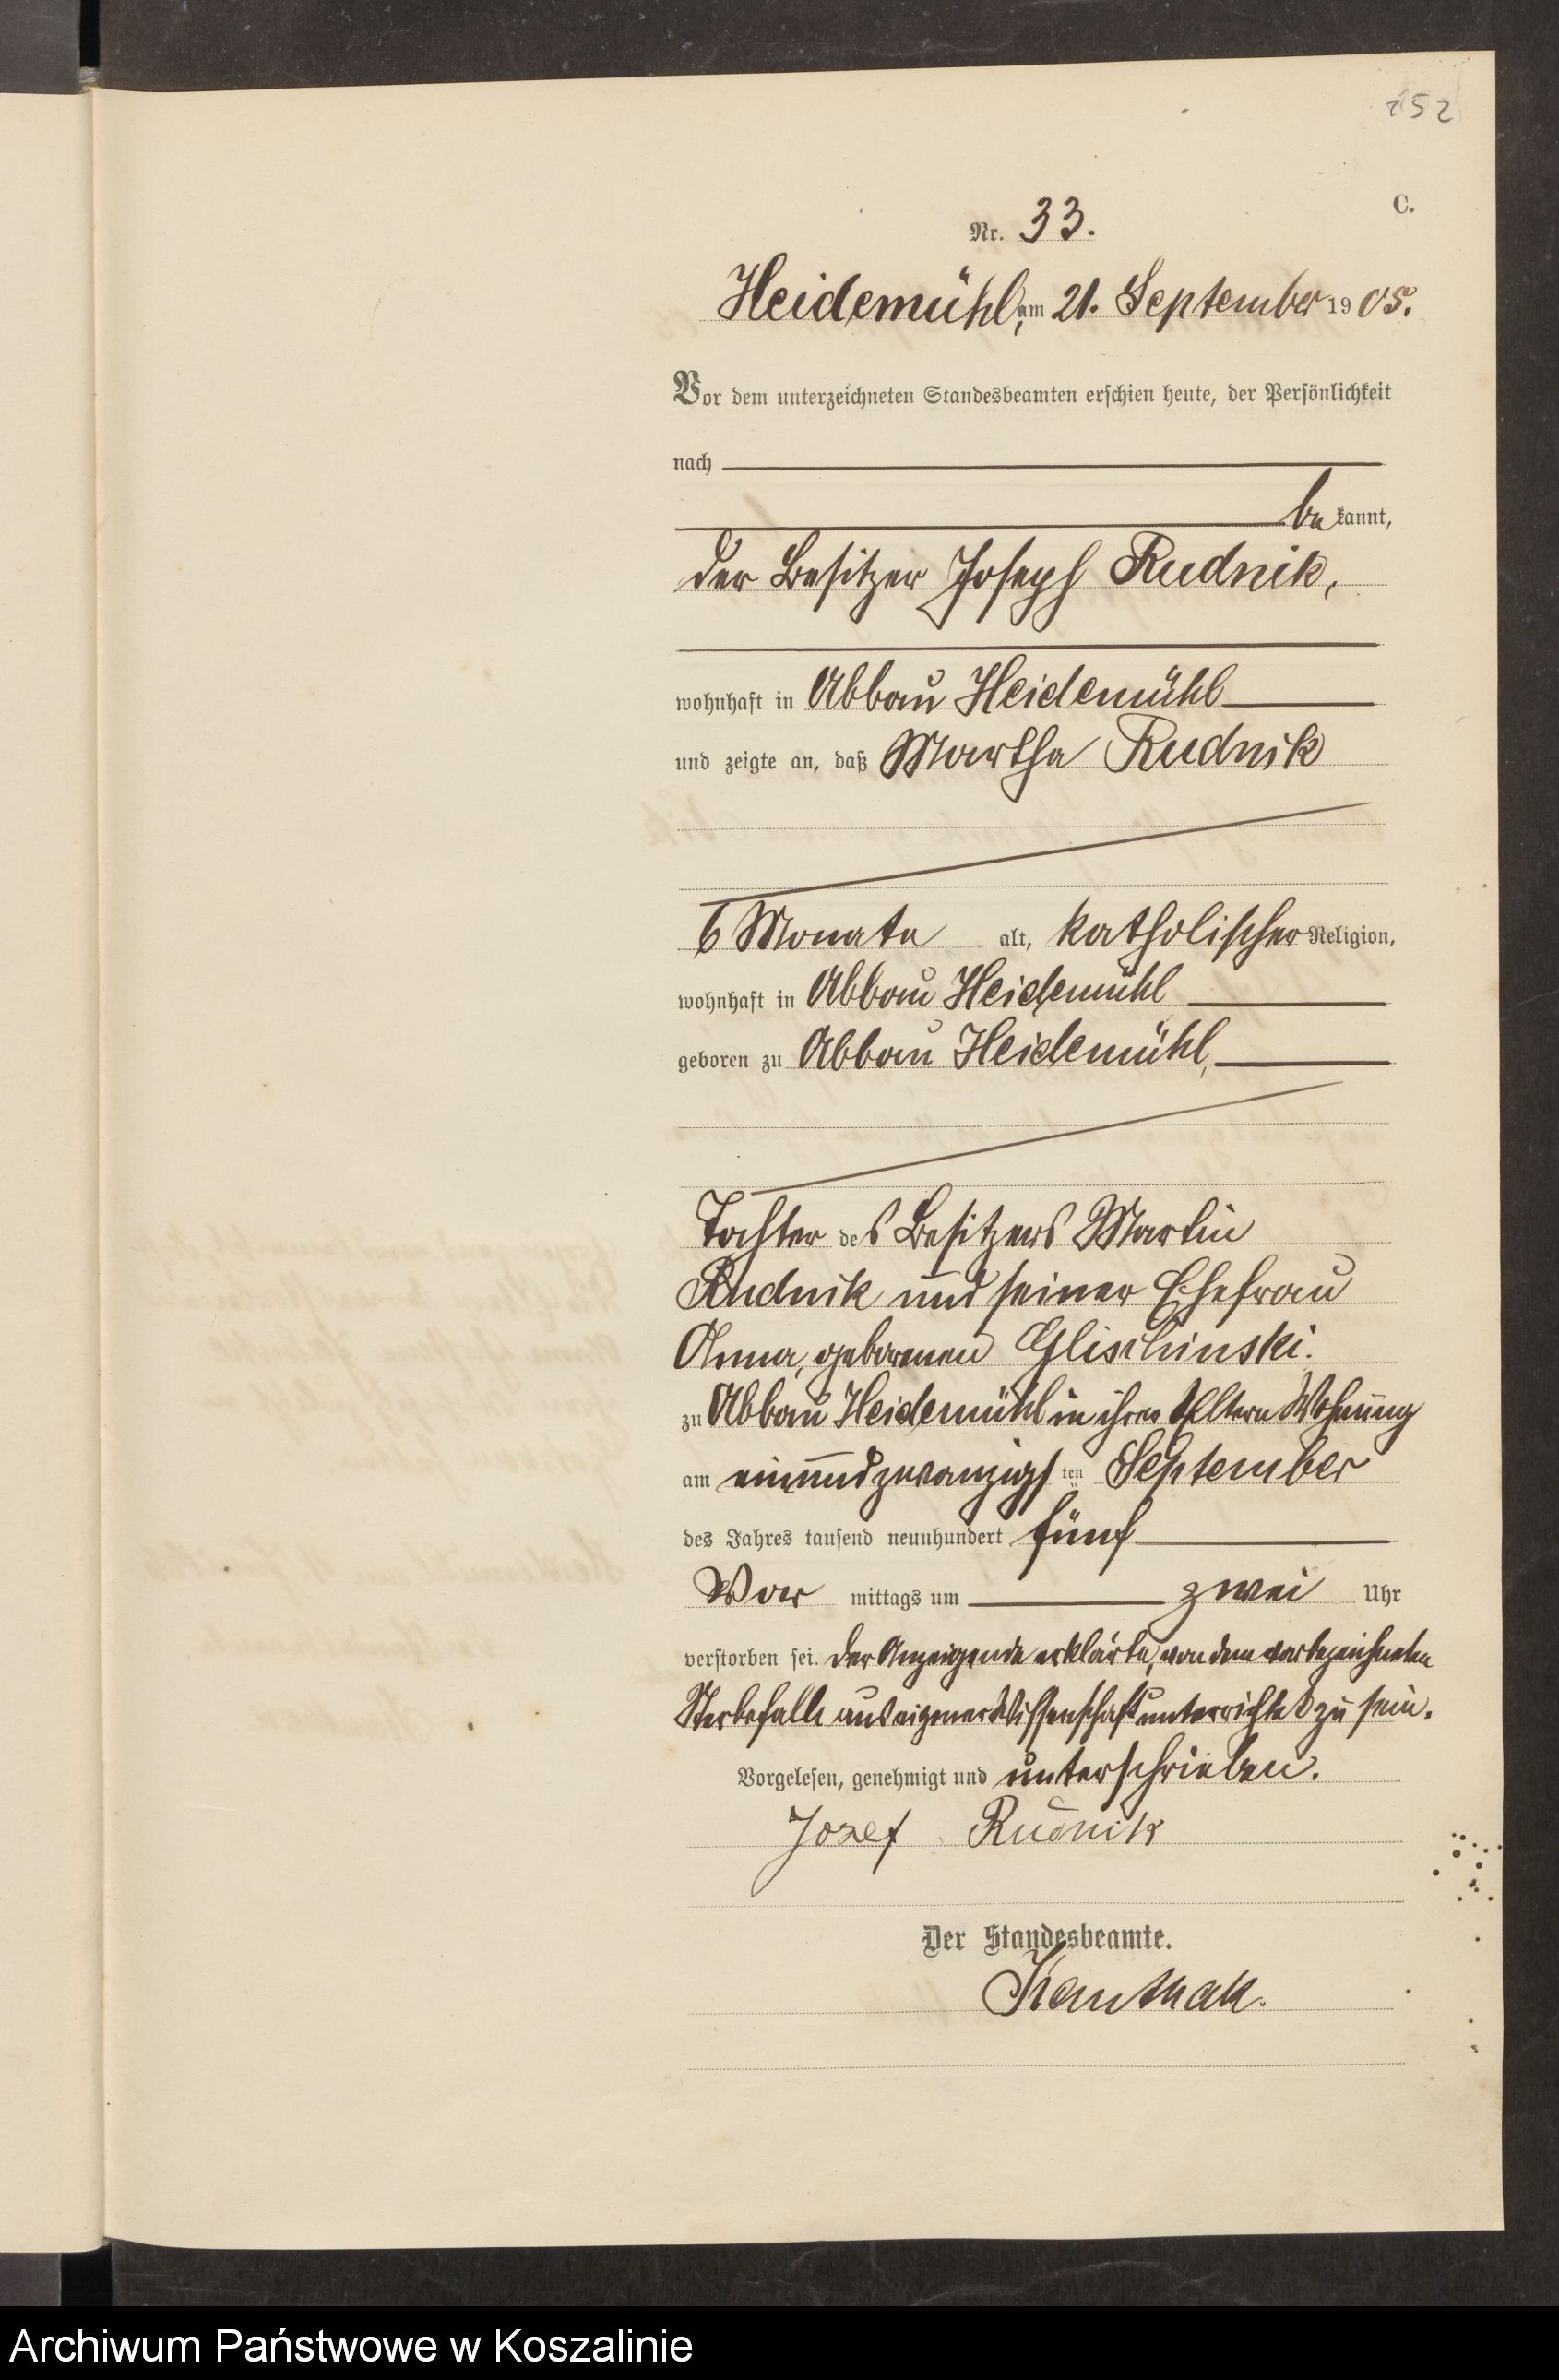 252
C.
Nr. 33.
Heidemühl, am 21. September 1905.
Vor dem unterzeichneten Standesbeamten erschien heute, der Persönlichkeit
nach
bekannt,
der Besitzer Joseph Rudnik,
wohnhaft in Abbau Heidemühl
und zeigte an, daß Martha Rudnik
6 Monate alt, katholischer Religion,
wohnhaft in Abbau Heidemühl
geboren zu Abbau Heidemühl,
Tochter des Besitzers Martin
Rudnik und seiner Ehefrau
Anna, geborenen Glischinski.
zu Abbau Heidemühl in ihrer Eltern Wohnung
am einundzwanzigsten September
des Jahres tausend neunhundert fünf
Vor mittags um zwei Uhr
verstorben sei. Der Anzeigende erklärte, von dem vorbezeichneten
Sterbefalle aus eigener Wissenschaft unterrichtet zu sein.
Vorgelesen, genehmigt und unterschrieben.
Jozef Rudnik
Der Standesbeamte.
Archiwum Państwowe w Koszalinie